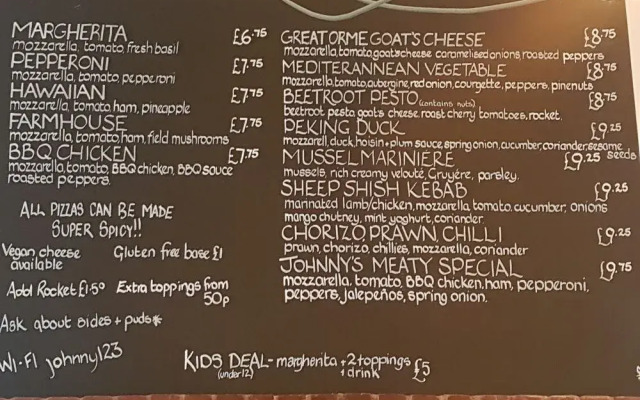 MARGHERITA £6.75
mozzarella, tomato, fresh basil
PEPPERONI £7.75
mozzarella, tomato, pepperoni
HAWAIIAN £7.75
mozzarella, tomato, ham, pineapple
FARMHOUSE £7.75
mozzarella, tomato, ham, field mushrooms
BBQ CHICKEN £7.75
mozzarella, tomato, BBQ chicken, BBQ sauce
roasted peppers.
ALL PIZZAS CAN BE MADE
SUPER SPICY!!
Vegan cheese
available
Gluten free base £1
Add Rocket £1.50
Extra toppings from
50p
Ask about sides + puds*
WI-FI johnny123
GREAT ORME GOAT'S CHEESE £8.75
mozzarella, tomato, goats cheese caramelised onions, roasted peppers
MEDITERANNEAN VEGETABLE £8.75
mozzarella, tomato, aubergine, red onion, courgette, peppers, pinenuts
BEETROOT PESTO (contains nuts) £8.75
beetroot pesto, goats cheese, roast cherry tomatoes, rocket.
PEKING DUCK £9.25
mozzarell, duck, hoisin + plum sauce, spring onion, cucumber, coriander, sesame
seeds
MUSSEL MARINIERE £9.25
mussels, rich creamy velouté, Gruyére, parsley.
SHEEP SHISH KEBAB £9.25
marinated lamb/chicken, mozzarella, tomato, cucumber, onions
mango chutney, mint yoghurt, coriander.
CHORIZO PRAWN CHILLI £9.25
prawn, chorizo, chillies, mozzarella, coriander
JOHNNY'S MEATY SPECIAL £9.75
mozzarella, tomato, BBQ chicken, ham, pepperoni,
peppers, jalepeños, spring onion.
KIDS DEAL - margherita + 2 toppings £5
(under 12) + drink